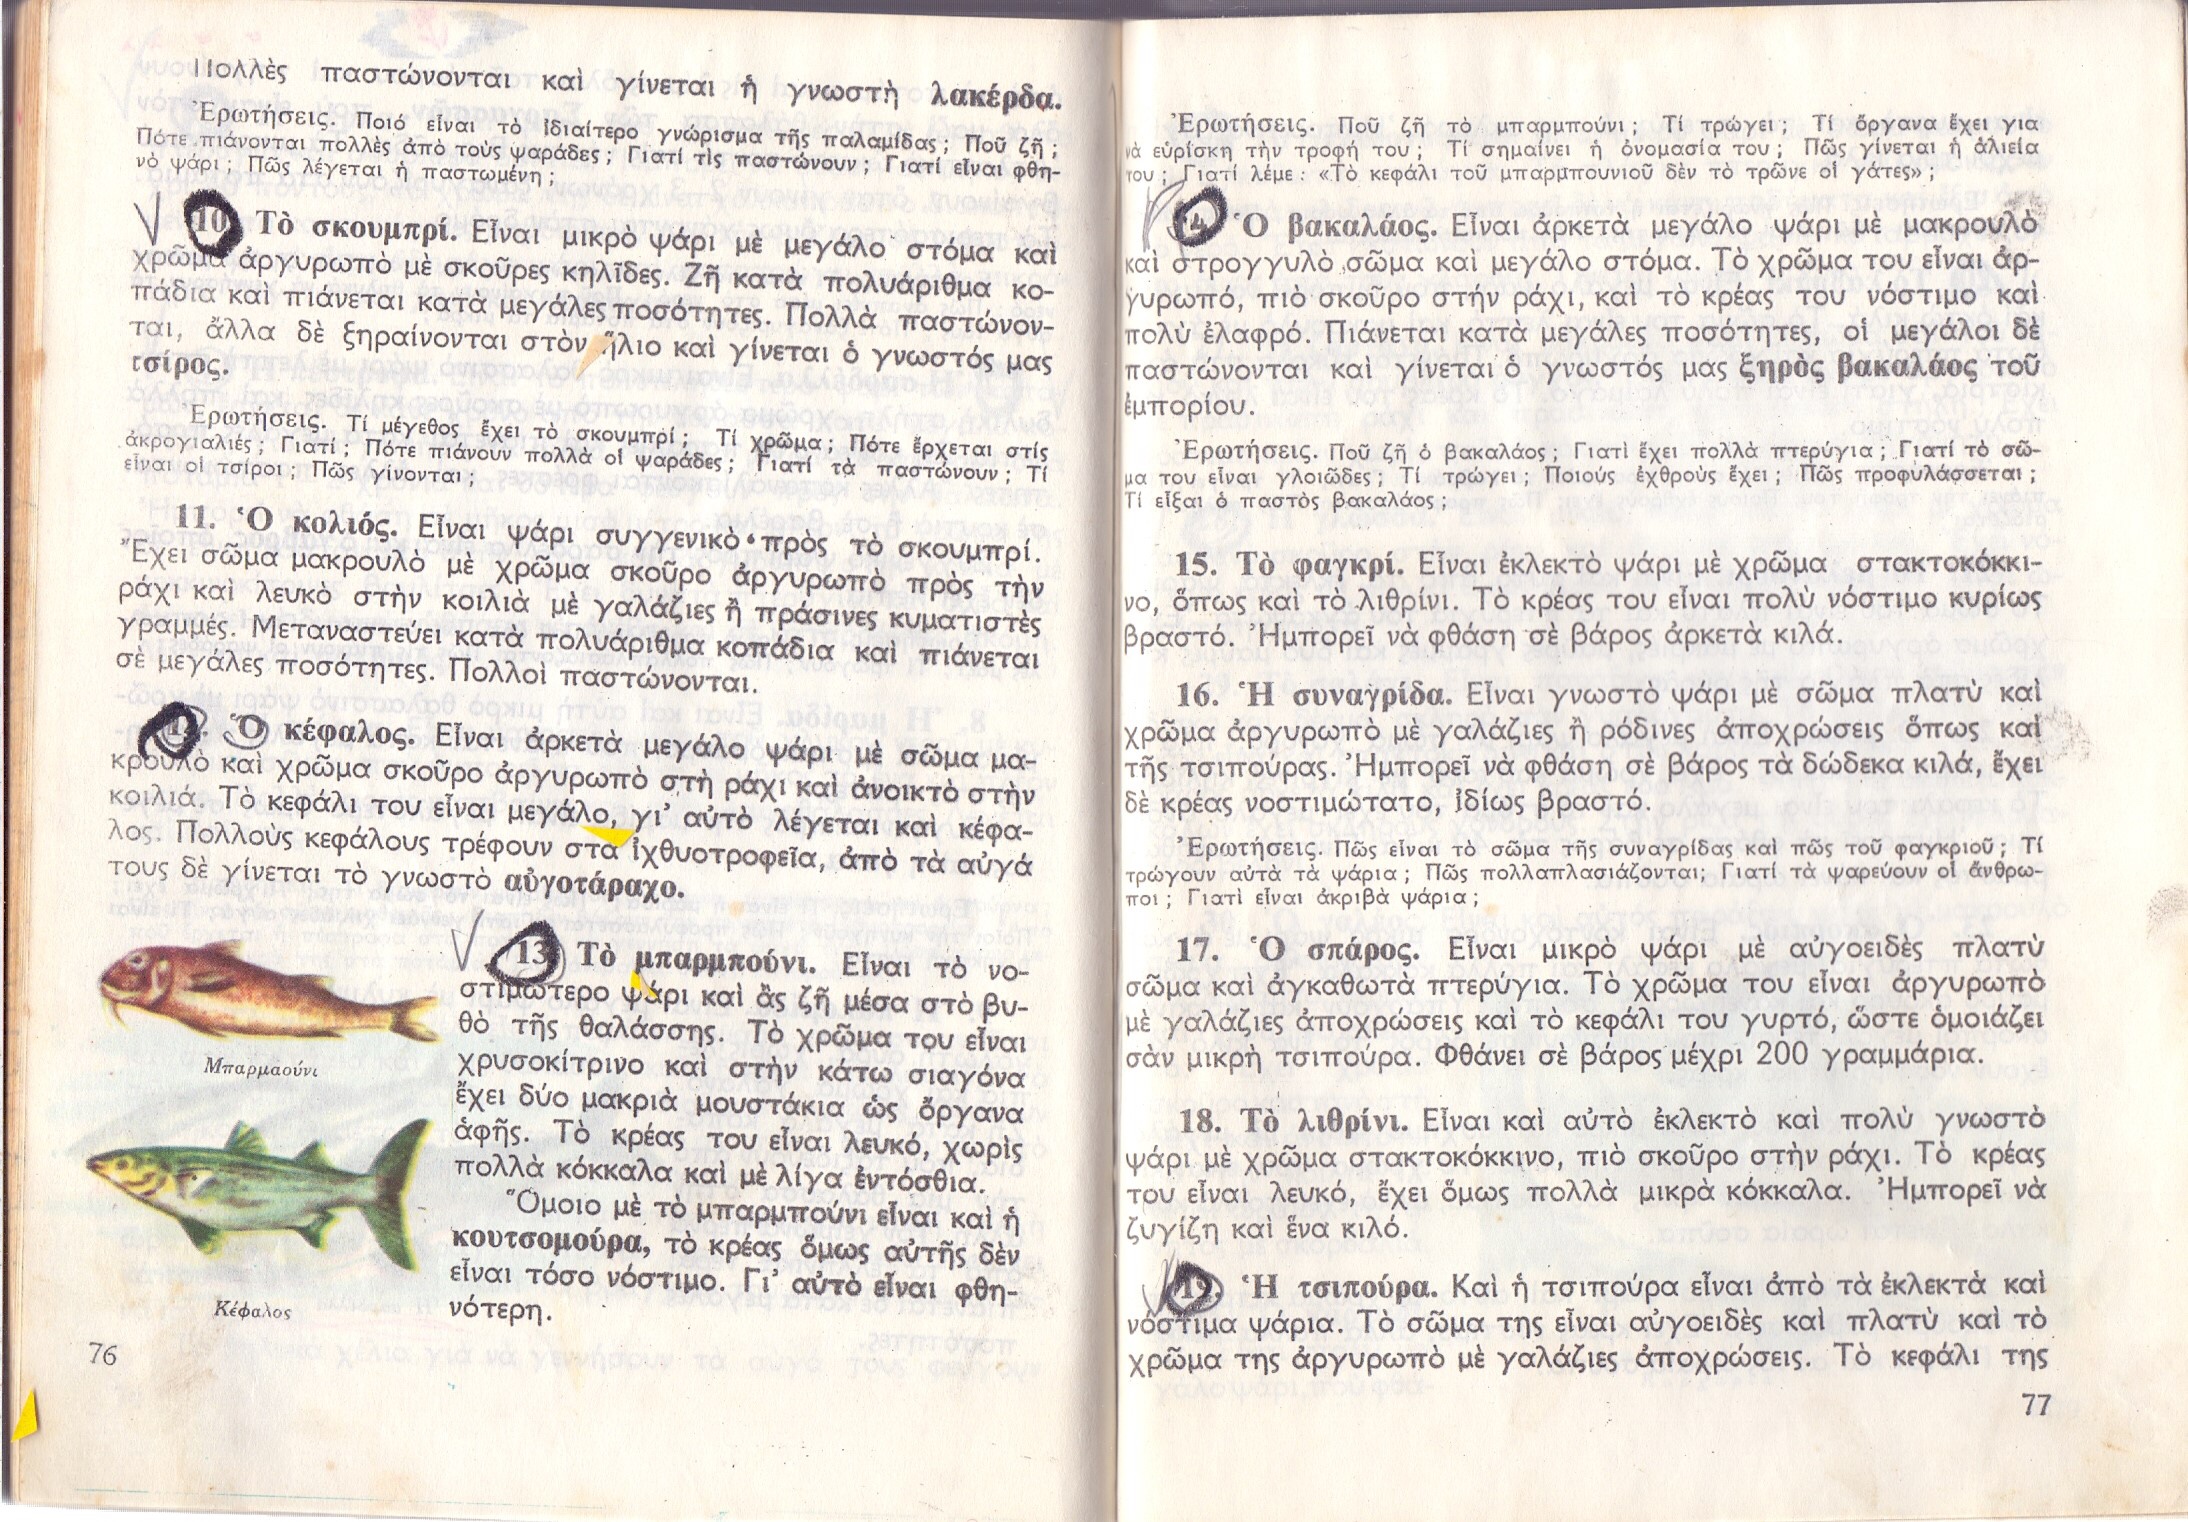 Πολλὲς παστώνονται καὶ γίνεται ἡ γνωστὴ λακέρδα.
Ἐρωτήσεις. Ποιό εἶναι τὸ ἰδιαίτερο γνώρισμα τῆς παλαμίδας; Ποῦ ζῆ;
Πότε πιάνονται πολλὲς ἀπὸ τοὺς ψαράδες; Γιατί τὶς παστώνουν; Γιατί εἶναι φθη-
νὸ ψάρι; Πῶς λέγεται ἡ παστωμένη;
10. Τὸ σκουμπρί. Εἶναι μικρὸ ψάρι μὲ μεγάλο στόμα καὶ
χρῶμα ἀργυρωπὸ μὲ σκοῦρες κηλῖδες. Ζῆ κατὰ πολυάριθμα κο-
πάδια καὶ πιάνεται κατὰ μεγάλες ποσότητες. Πολλὰ παστώνον-
ται, ἄλλα δὲ ξηραίνονται στὸν ἥλιο καὶ γίνεται ὁ γνωστός μας
τσίρος.
Ἐρωτήσεις. Τί μέγεθος ἔχει τὸ σκουμπρί; Τί χρῶμα; Πότε ἔρχεται στίς
ἀκρογιαλιές; Γιατί; Πότε πιάνουν πολλὰ οἱ ψαράδες; Γιατί τὰ παστώνουν; Τί
εἶναι οἱ τσίροι; Πῶς γίνονται;
11. Ὁ κολιός. Εἶναι ψάρι συγγενικὸ πρὸς τὸ σκουμπρί.
Ἔχει σῶμα μακρουλὸ μὲ χρῶμα σκοῦρο ἀργυρωπὸ πρὸς τὴν
ράχι καὶ λευκὸ στὴν κοιλιὰ μὲ γαλάζιες ἢ πράσινες κυματιστὲς
γραμμές. Μεταναστεύει κατὰ πολυάριθμα κοπάδια καὶ πιάνεται
σὲ μεγάλες ποσότητες. Πολλοὶ παστώνονται.
12. Ὁ κέφαλος. Εἶναι ἀρκετὰ μεγάλο ψάρι μὲ σῶμα μα-
κρουλὸ καὶ χρῶμα σκοῦρο ἀργυρωπὸ στὴ ράχι καὶ ἀνοικτὸ στὴν
κοιλιά. Τὸ κεφάλι του εἶναι μεγάλο, γι' αὐτὸ λέγεται καὶ κέφα-
λος. Πολλοὺς κεφάλους τρέφουν στὰ ἰχθυοτροφεῖα, ἀπὸ τὰ αὐγά
τους δὲ γίνεται τὸ γνωστὸ αὐγοτάραχο.
13. Τὸ μπαρμπούνι. Εἶναι τὸ νο-
στιμώτερο ψάρι καὶ ἂς ζῆ μέσα στὸ βυ-
θὸ τῆς θαλάσσης. Τὸ χρῶμα του εἶναι
χρυσοκίτρινο καὶ στὴν κάτω σιαγόνα
ἔχει δύο μακριὰ μουστάκια ὡς ὄργανα
ἁφῆς. Τὸ κρέας του εἶναι λευκό, χωρὶς
πολλὰ κόκκαλα καὶ μὲ λίγα ἐντόσθια.
Ὅμοιο μὲ τὸ μπαρμπούνι εἶναι καὶ ἡ
κουτσομούρα, τὸ κρέας ὅμως αὐτῆς δὲν
εἶναι τόσο νόστιμο. Γι' αὐτὸ εἶναι φθη-
νότερη.
Μπαρμαούνι
Κέφαλος
76
Ἐρωτήσεις. Ποῦ ζῆ τὸ μπαρμπούνι; Τί τρώγει; Τί ὄργανα ἔχει για
νὰ εὑρίσκη τὴν τροφή του; Τί σημαίνει ἡ ὀνομασία του; Πῶς γίνεται ἡ ἁλιεία
του; Γιατί λέμε: «Τὸ κεφάλι τοῦ μπαρμπουνιοῦ δὲν τὸ τρῶνε οἱ γάτες»;
14. Ὁ βακαλάος. Εἶναι ἀρκετὰ μεγάλο ψάρι μὲ μακρουλὸ
καὶ στρογγυλὸ σῶμα καὶ μεγάλο στόμα. Τὸ χρῶμα του εἶναι ἀρ-
γυρωπό, πιὸ σκοῦρο στήν ράχι, καὶ τὸ κρέας του νόστιμο καὶ
πολὺ ἐλαφρό. Πιάνεται κατὰ μεγάλες ποσότητες, οἱ μεγάλοι δὲ
παστώνονται καὶ γίνεται ὁ γνωστός μας ξηρὸς βακαλάος τοῦ
ἐμπορίου.
Ἐρωτήσεις. Ποῦ ζῆ ὁ βακαλάος; Γιατὶ ἔχει πολλὰ πτερύγια; Γιατί τὸ σῶ-
μα του εἶναι γλοιῶδες; Τί τρώγει; Ποιούς ἐχθροὺς ἔχει; Πῶς προφυλάσσεται;
Τί εἶξαι ὁ παστὸς βακαλάος;
15. Τὸ φαγκρί. Εἶναι ἐκλεκτὸ ψάρι μὲ χρῶμα στακτοκόκκι-
νο, ὅπως καὶ τὸ λιθρίνι. Τὸ κρέας του εἶναι πολὺ νόστιμο κυρίως
βραστό. Ἠμπορεῖ νὰ φθάση σὲ βάρος ἀρκετὰ κιλά.
16. Ἡ συναγρίδα. Εἶναι γνωστὸ ψάρι μὲ σῶμα πλατὺ καὶ
χρῶμα ἀργυρωπὸ μὲ γαλάζιες ἢ ρόδινες ἀποχρώσεις ὅπως καὶ
τῆς τσιπούρας. Ἠμπορεῖ νὰ φθάση σὲ βάρος τὰ δώδεκα κιλά, ἔχει
δὲ κρέας νοστιμώτατο, ἰδίως βραστό.
Ἐρωτήσεις. Πῶς εἶναι τὸ σῶμα τῆς συναγρίδας καὶ πῶς τοῦ φαγκριοῦ; Τί
τρώγουν αὐτὰ τὰ ψάρια; Πῶς πολλαπλασιάζονται; Γιατί τὰ ψαρεύουν οἱ ἄνθρω-
ποι; Γιατὶ εἶναι ἀκριβὰ ψάρια;
17. Ὁ σπάρος. Εἶναι μικρὸ ψάρι μὲ αὐγοειδὲς πλατὺ
σῶμα καὶ ἀγκαθωτὰ πτερύγια. Τὸ χρῶμα του εἶναι ἀργυρωπὸ
μὲ γαλάζιες ἀποχρώσεις καὶ τὸ κεφάλι του γυρτό, ὥστε ὁμοιάζει
σὰν μικρὴ τσιπούρα. Φθάνει σὲ βάρος μέχρι 200 γραμμάρια.
18. Τὸ λιθρίνι. Εἶναι καὶ αὐτὸ ἐκλεκτὸ καὶ πολὺ γνωστὸ
ψάρι μὲ χρῶμα στακτοκόκκινο, πιὸ σκοῦρο στὴν ράχι. Τὸ κρέας
του εἶναι λευκό, ἔχει ὅμως πολλὰ μικρὰ κόκκαλα. Ἠμπορεῖ νὰ
ζυγίζη καὶ ἕνα κιλό.
19. Ἡ τσιπούρα. Καὶ ἡ τσιπούρα εἶναι ἀπὸ τὰ ἐκλεκτὰ καὶ
νόστιμα ψάρια. Τὸ σῶμα της εἶναι αὐγοειδὲς καὶ πλατὺ καὶ τὸ
χρῶμα της ἀργυρωπὸ μὲ γαλάζιες ἀποχρώσεις. Τὸ κεφάλι της
77